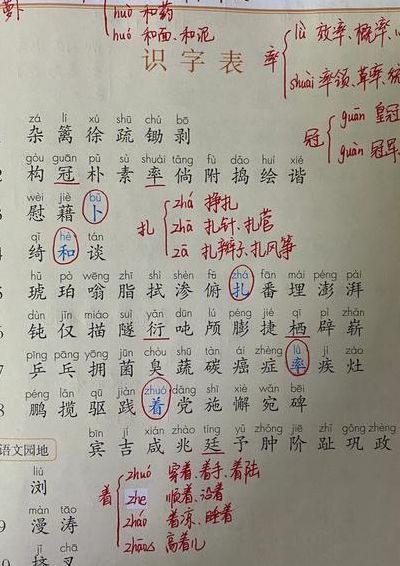 萝卜
huò 和药
huó 和面、和泥
识字表
率
lǜ 效率、概率、
shuài 率领、草率、统
冠
guān 皇冠
guàn 冠军
zá lí xú shū chú bō
杂 篱 徐 疏 锄 剥
gòu guān pǔ sù shuài tǎng fù dǎo huì xié
2 构 冠 朴 素 率 倘 附 捣 绘 谐
wèi jiè bǔ
3 慰 藉 卜
扎
zhá 挣扎
zhā 扎针、扎营
zā 扎辫子、扎风筝
qǐ hè tán
4 绮 和 谈
hǔ pò wēng zhī shì shèn fǔ zhá fān mái péng pài
5 琥 珀 嗡 脂 拭 渗 俯 扎 番 埋 澎 湃
dùn jǐn miáo suì yǎn dūn lú péng jié qī pì zhǎn
6 钝 仅 描 隧 衍 吨 颅 膨 捷 栖 辟 崭
pīng pāng yǒng jūn chòu shū tàn ái zhèng lǜ jí zāo
7 乒 乓 拥 菌 臭 蔬 碳 癌 症 率 疾 灶
péng lǎn qū jiàn zhuó dǎng shī xiè wǎn bēi
8 鹏 揽 驱 践 着 党 施 懈 宛 碑
bīn jí xián zhào tíng yǔ zhǒng jiē zhǐ gǒng zhèng
语文园地 宾 吉 咸 兆 廷 予 肿 阶 趾 巩 政
liú
浏
着
zhuó 穿着、着手、着陆
zhe 顺着、沿着
zháo 着凉、睡着
zhāo 高着儿
màn tāo
9 漫 涛
jǐ chā
10 挤 叉